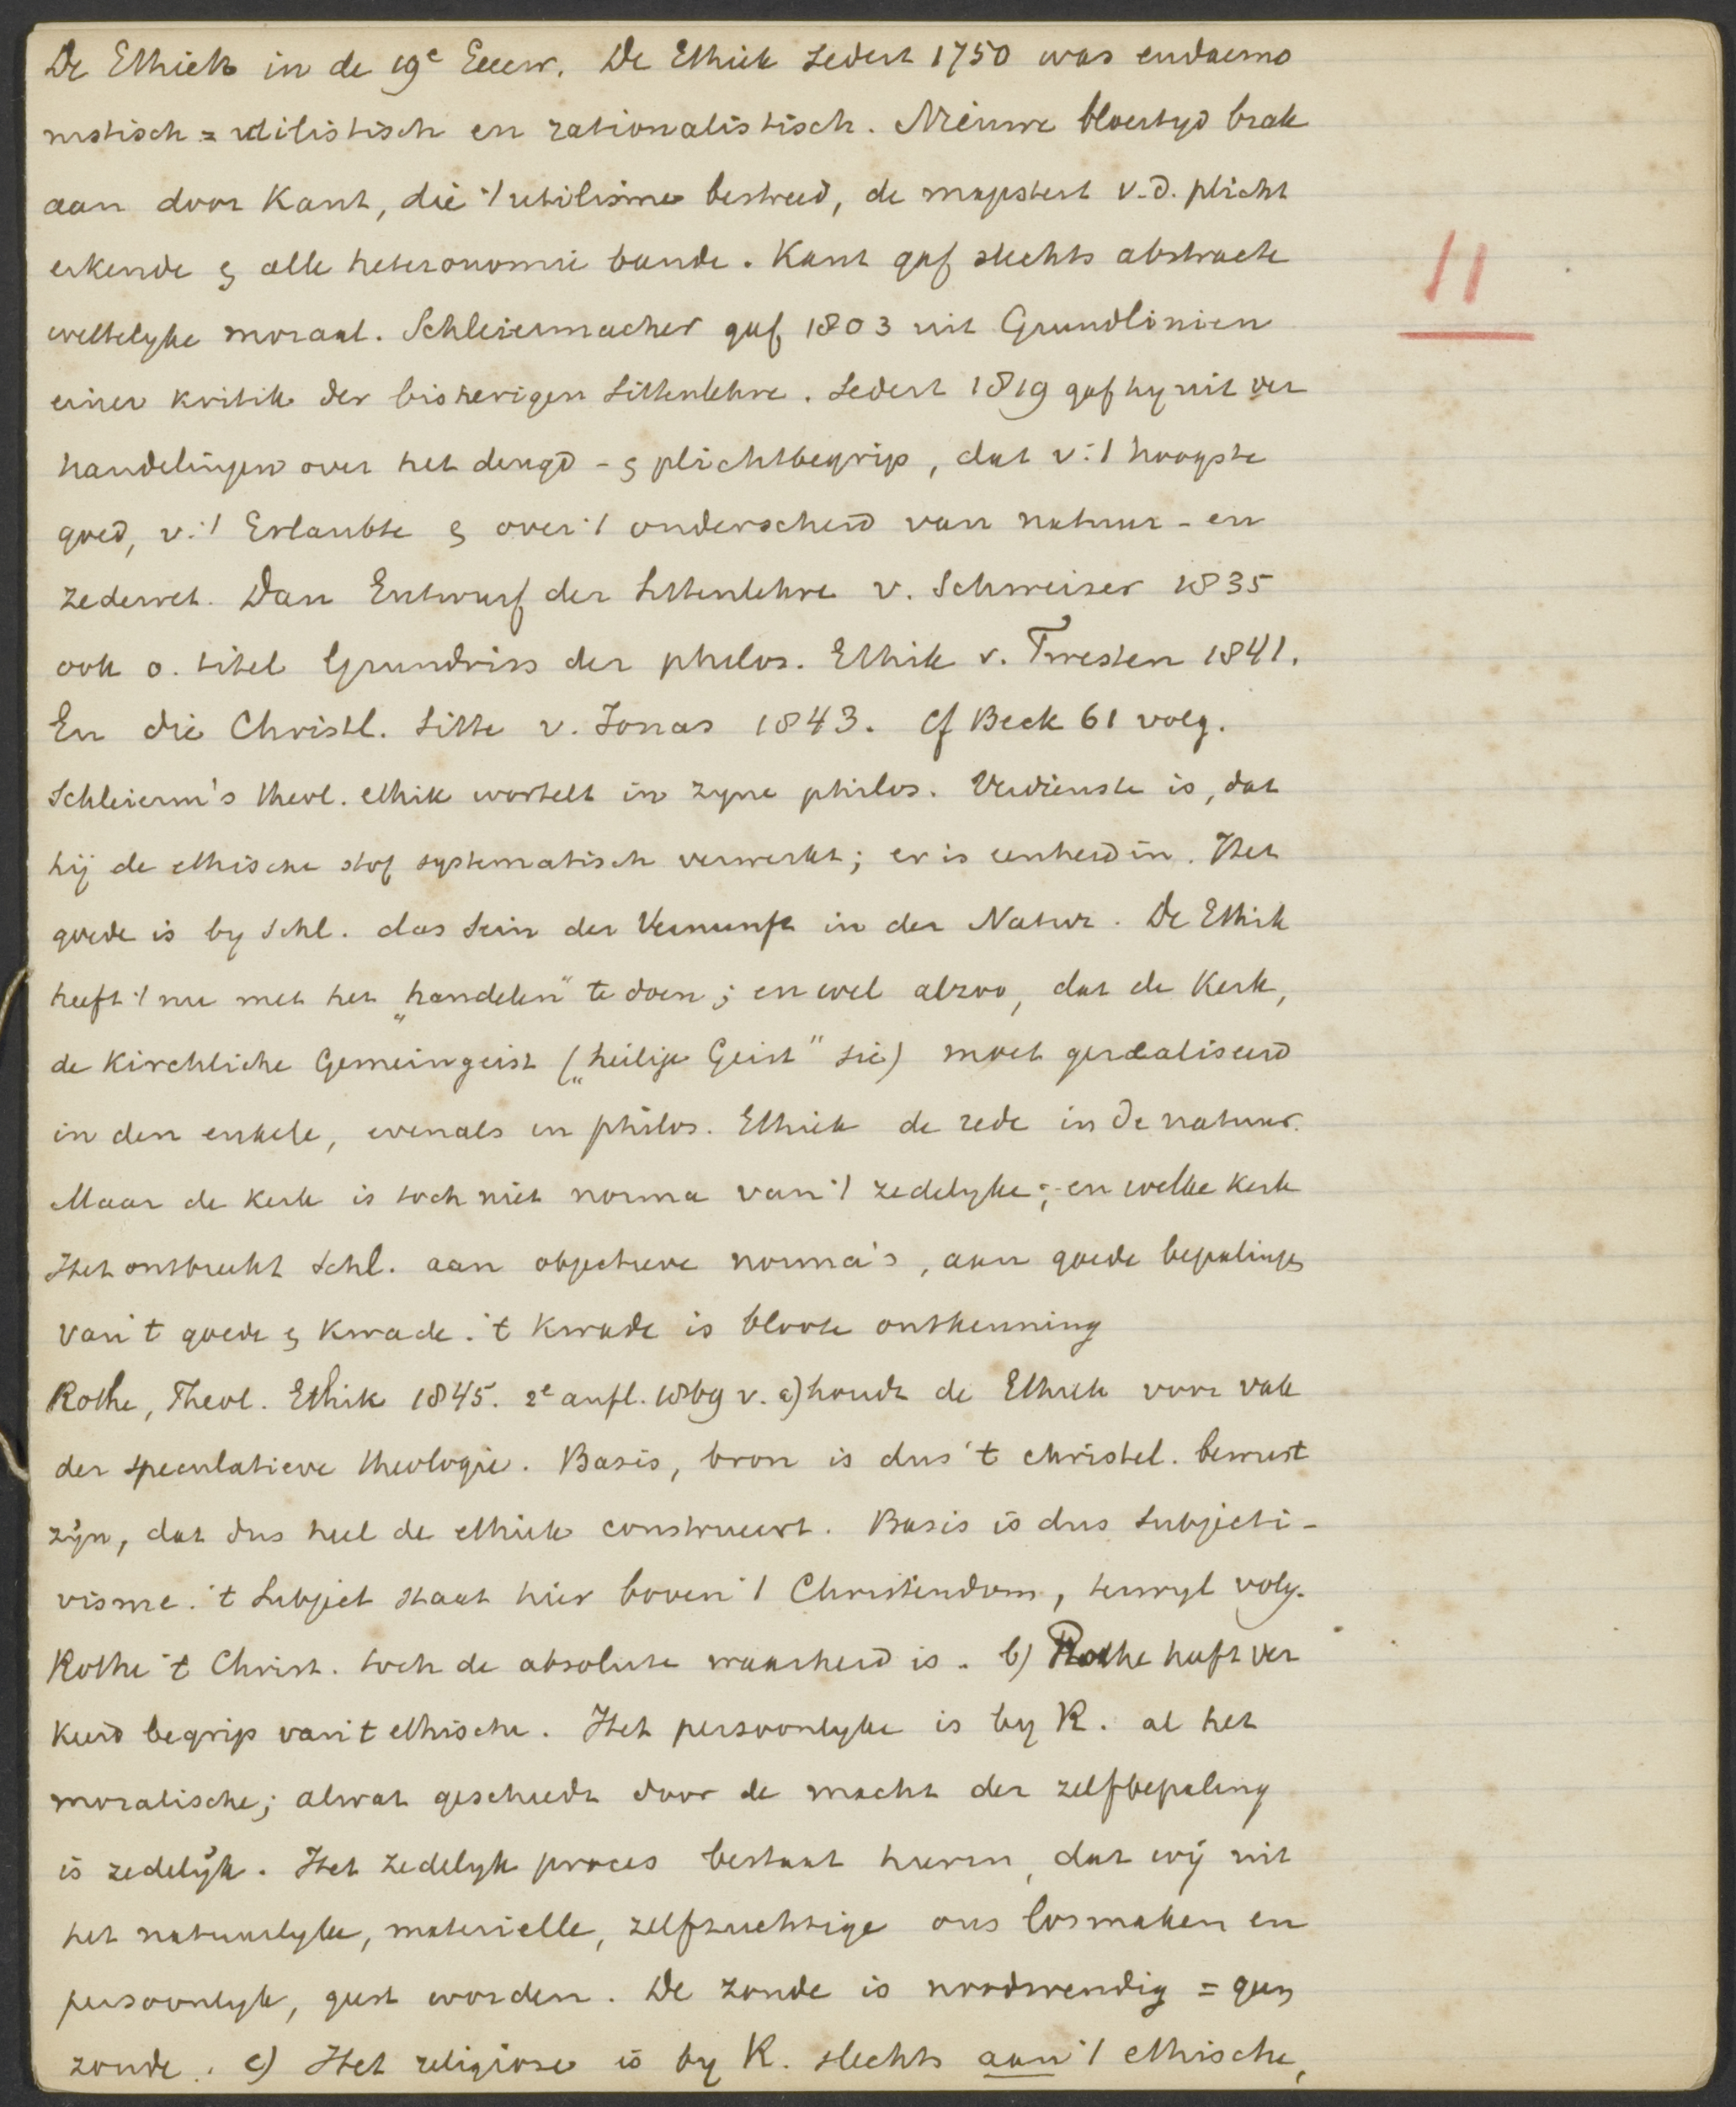 De Ethiek in de 19e Eeuw. De Ethiek sedert 1750 was eudaemo
nistisch = utilistisch en rationalistisch. Nieuwe bloeityd brak
aan door Kant, die 't utilisme bestreed, de majesteit v.d. plicht
erkende & alle heteronomie bande. Kant gaf slechts abstracte
wettelyke moraal. Schleiermacher gaf 1803 uit Grundlinien
einer Kritik der bisherigen Sittenlehre. Sedert 1819 gaf hy uit ver
handelingen over het deugd - & plichtbegrip, dat v. 't hoogste
goed, v. 't Erlaubte & over 't onderscheid van natuur - en
zedewet. Dan Entwurf der Sittenlehre v. Schweizer 1835
ook o. titel Grundriss der philos. Ethik v. Twesten 1841.
En die Christl. Sitte v. Jonas 1843. Cf Beck 61 volg.
Schleierm's theol. ethik wortelt in zyne philos. Verdienste is, dat
hij de ethische stof systematisch verwerkt; er is eenheid in. Het
goede is by Schl. das Sein der Vernunft in der Natur. De Ethik
heeft 't nu met het „handelen" te doen; en wel alzoo, dat de Kerk,
de Kirchliche Gemeingeist („heilige Geist" sic) moet gerealiseerd
in den enkele, evenals in philos. Ethiek de rede in de natuur.
Maar de kerk is toch niet norma van 't zedelyke; en welke kerk
Het ontbreekt Schl. aan objectieve norma's, aan goede bepalingen
van 't goede & kwade. 't Kwade is bloote ontkenning
Rothe, Theol. Ethik 1845. 2e aufl. 1869 v. a) houdt de Ethiek voor vak
der speculatieve theologie. Basis, bron is dus 't christel. bewust
zijn, dat dus heel de ethiek construeert. Basis is dus subjecti-
visme. 't Subject staat hier boven 't Christendom, terwyl volg.
Rothe 't Christ. toch de absolute waarheid is. b) Rothe heeft ver
keerd begrip van 't ethische. Het persoonlyke is by R. al het
moralische; alwat geschiedt door de macht der zelfbepaling
is zedelijk. Het zedelyk proces bestaat hierin, dat wij uit
het natuurlyke, materieele, zelfzuchtige ons losmaken en
persoonlyk, geest worden. De zonde is noodwendig = geen
zonde. c) Het religiose is by R. slechts aan 't ethische,
11